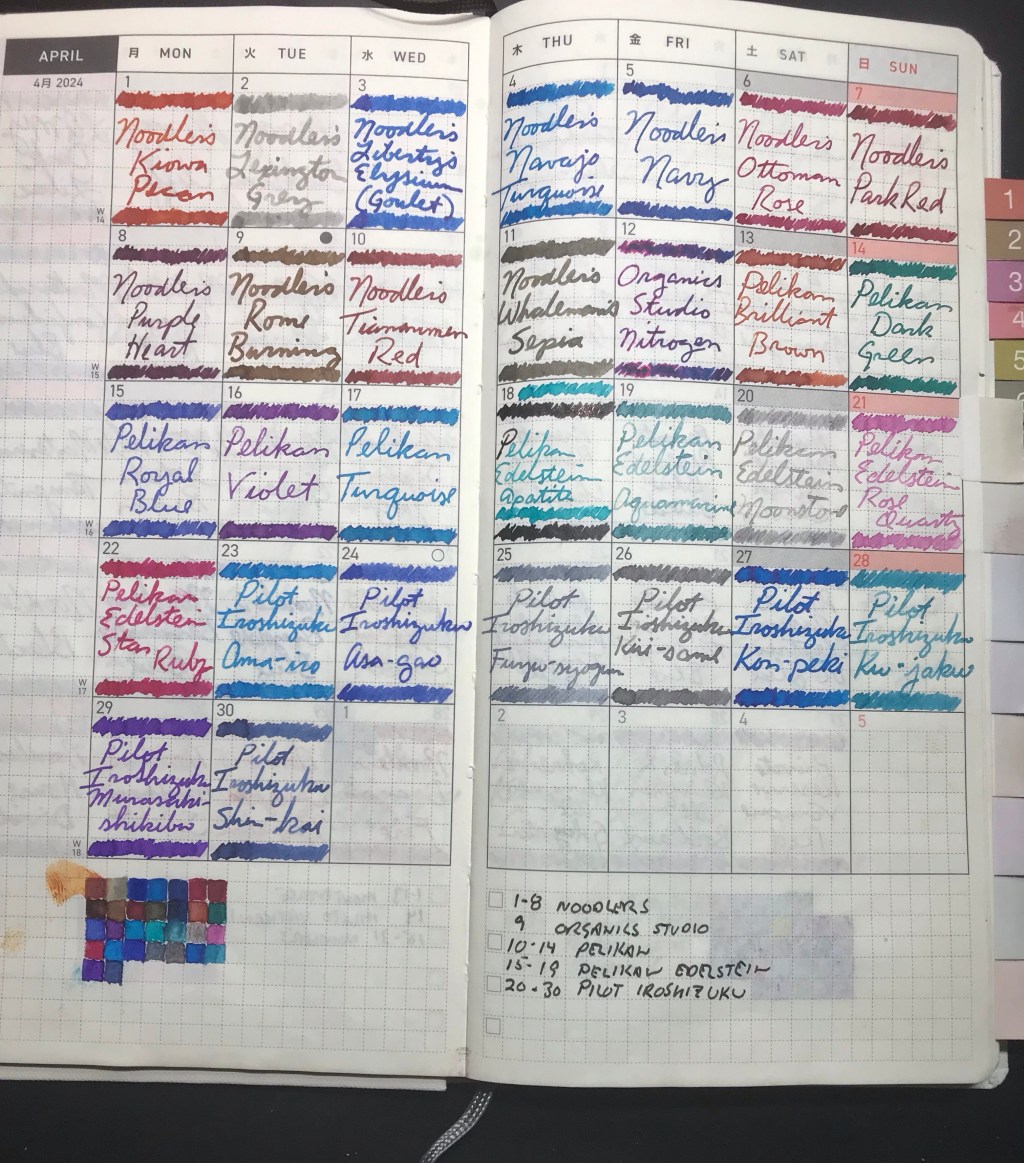 APRIL
月 MON
火 TUE
水 WED
木 THU
金 FRI
土 SAT
日 SUN
4月 2024
1
Noodler's
Kiowa
Pecan
2
Noodler's
Lexington
Grey
3
Noodler's
Liberty's
Elysium
(Goulet)
4
Noodler's
Navajo
Turquoise
5
Noodler's
Navy
6
Noodler's
Ottoman
Rose
7
Noodler's
Park Red
W
14
8
Noodler's
Purple
Heart
9
Noodler's
Rome
Burning
10
Noodler's
Tiananmen
Red
11
Noodler's
Whaleman's
Sepia
12
Organics
Studio
Nitrogen
13
Pelikan
Brilliant
Brown
14
Pelikan
Dark
Green
W
15
15
Pelikan
Royal
Blue
16
Pelikan
Violet
17
Pelikan
Turquoise
18
Pelikan
Edelstein
Apatite
19
Pelikan
Edelstein
Aquamarine
20
Pelikan
Edelstein
Moonstone
21
Pelikan
Edelstein
Rose
Quartz
W
16
22
Pelikan
Edelstein
Star
Ruby
23
Pilot
Iroshizuku
Ama-iro
24
Pilot
Iroshizuku
Asa-gao
25
Pilot
Iroshizuku
Fuyu-syogun
26
Pilot
Iroshizuku
Kiri-same
27
Pilot
Iroshizuku
Kon-peki
28
Pilot
Iroshizuku
Ku-jaku
W
17
29
Pilot
Iroshizuku
Murasaki-
shikibu
30
Pilot
Iroshizuku
Shin-kai
1
2
3
4
5
W
18
1-8 NOODLERS
9 ORGANICS STUDIO
10-14 PELIKAN
15-19 PELIKAN EDELSTEIN
20-30 PILOT IROSHIZUKU
1
2
3
4
5